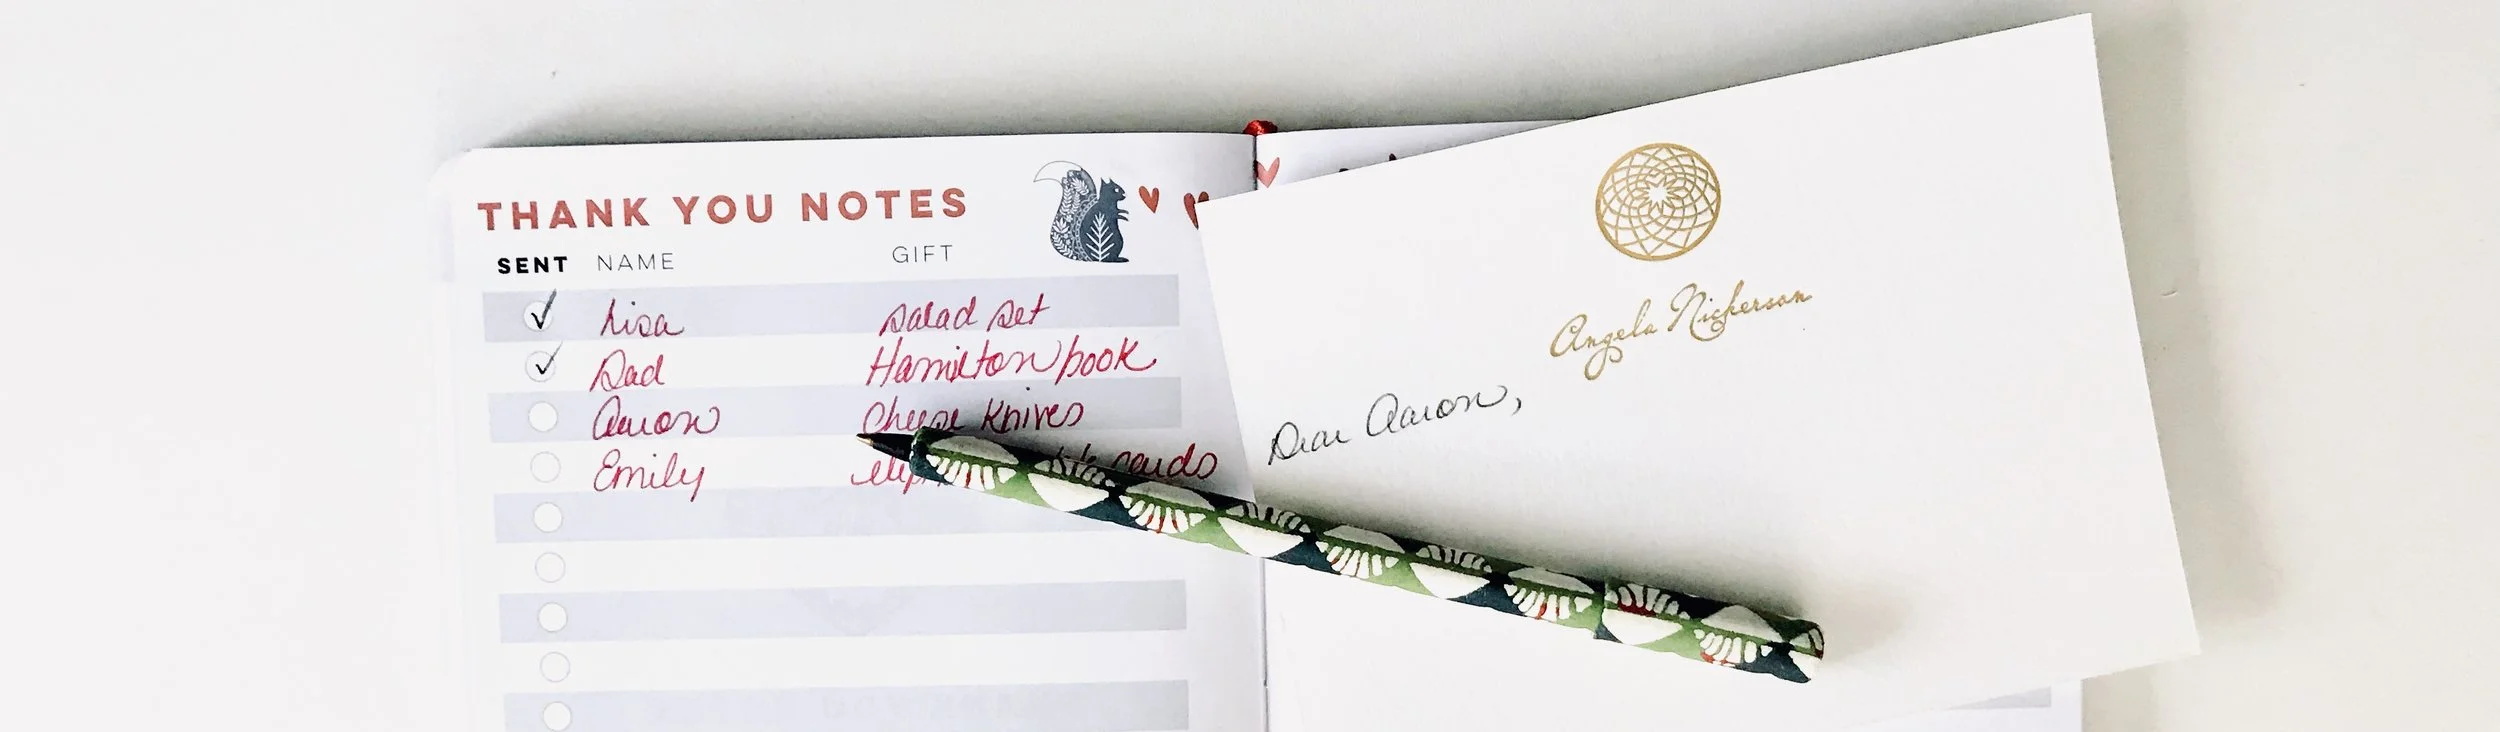 THANK YOU NOTES
SENT NAME GIFT
Lisa salad set
Dad Hamilton book
Aaron Cheese Knives
Emily cards
Angela Nickerson
Dear Aaron,